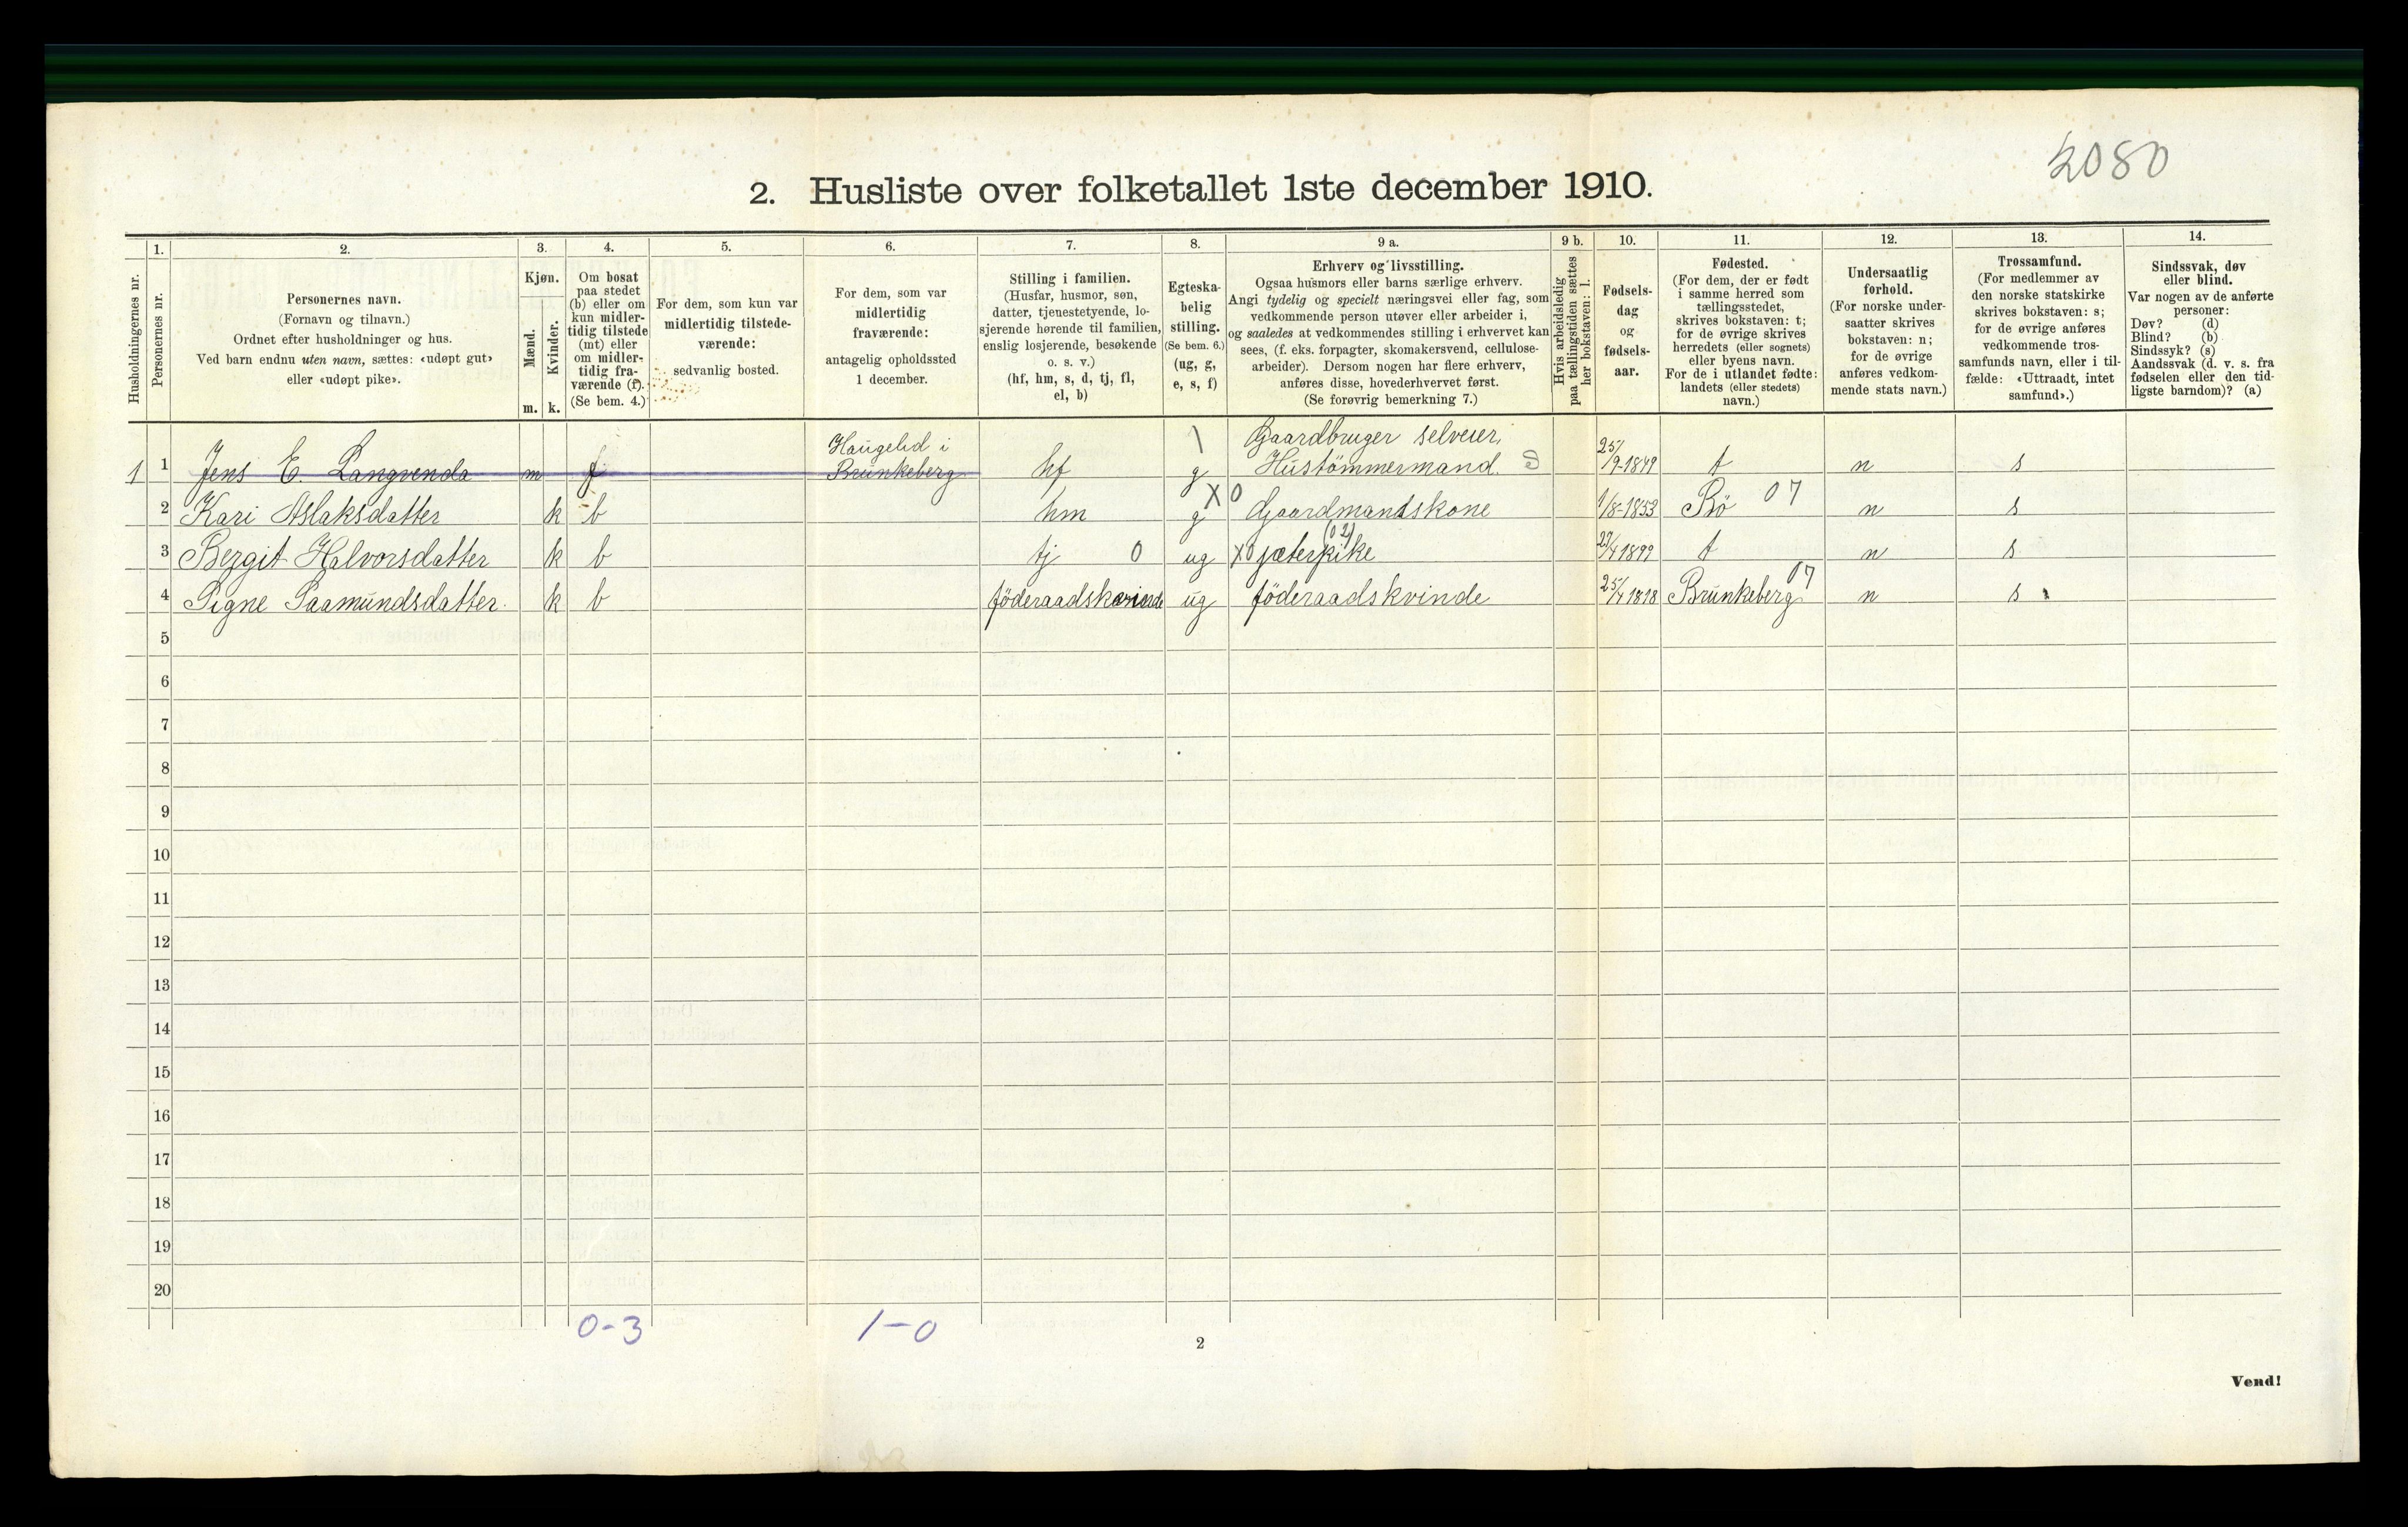 2080
2. Husliste over folketallet 1ste december 1910.
Husholdningernes nr.
1.
Personernes nr.
2.
Personernes navn.
(Fornavn og tilnavn.)
Ordnet efter husholdninger og hus.
Ved barn endnu uten navn, sættes: «udøpt gut»
eller «udøpt pike».
3.
Kjøn.
Mænd.
Kvinder.
m. k.
4.
Om bosat
paa stedet
(b) eller om
kun midler-
tidig tilstede
(mt) eller
om midler-
tidig fra-
værende (f).
(Se bem. 4.)
5.
For dem, som kun var
midlertidig tilstede-
værende:
sedvanlig bosted.
6.
For dem, som var
midlertidig
fraværende:
antagelig opholdssted
1 december.
7.
Stilling i familien.
(Husfar, husmor, søn,
datter, tjenestetyende, lo-
sjerende hørende til familien,
enslig losjerende, besøkende
o. s. v.)
(hf, hm, s, d, tj, fl,
el, b)
8.
Egteska-
belig
stilling.
(Se bem. 6.)
(ug, g,
e, s, f)
9 a.
Erhverv og livsstilling.
Ogsaa husmors eller barns særlige erhverv.
Angi tydelig og specielt næringsvei eller fag, som
vedkommende person utøver eller arbeider i,
og saaledes at vedkommendes stilling i erhvervet kan
sees, (f. eks. forpagter, skomakersvend, cellulose-
arbeider). Dersom nogen har flere erhverv,
anføres disse, hovederhvervet først.
(Se forøvrig bemerkning 7.)
9 b.
Hvis arbeidsledig
paa tællingstiden sættes
her bokstaven: l.
10.
Fødsels-
dag
og
fødsels-
aar.
11.
Fødested.
(For dem, der er født
i samme herred som
tællingsstedet,
skrives bokstaven: t;
for de øvrige skrives
herredets (eller sognets)
eller byens navn.
For de i utlandet fødte:
landets (eller stedets)
navn.)
12.
Undersaatlig
forhold.
(For norske under-
saatter skrives
bokstaven: n;
for de øvrige
anføres vedkom-
mende stats navn.)
13.
Trossamfund.
(For medlemmer av
den norske statskirke
skrives bokstaven: s;
for de øvrige anføres
vedkommende tros-
samfunds navn, eller i til-
fælde: «Uttraadt, intet
samfund».)
14.
Sindssvak, døv
eller blind.
Var nogen av de anførte
personer:
Døv? (d)
Blind? (b)
Sindssyk? (s)
Aandssvak (d. v. s. fra
fødselen eller den tid-
ligste barndom)? (a)
Haugelid i \ Gaardbruger selveier,
1 1 Jens E. Langvenda m f Brunkeberg hf g Hustömmermand. 25/9-1849 t n s
2 Kari Aslaksdatter k b hm g X 0 Gaardmandskone 1/8-1853 Bö 07 n s
(02)
3 Bergit Halvorsdatter k b tj 0 ug X 0 jæterpike 27/4 1899 t n s
4 Signe Saamundsdatter. k b föderaadskvinde ug föderaadskvinde 25/4 1818 Brunkeberg 07 n s
5
6
7
8
9
10
11
12
13
14
15
16
17
18
19
20
0-3 1-0
2
Vend!